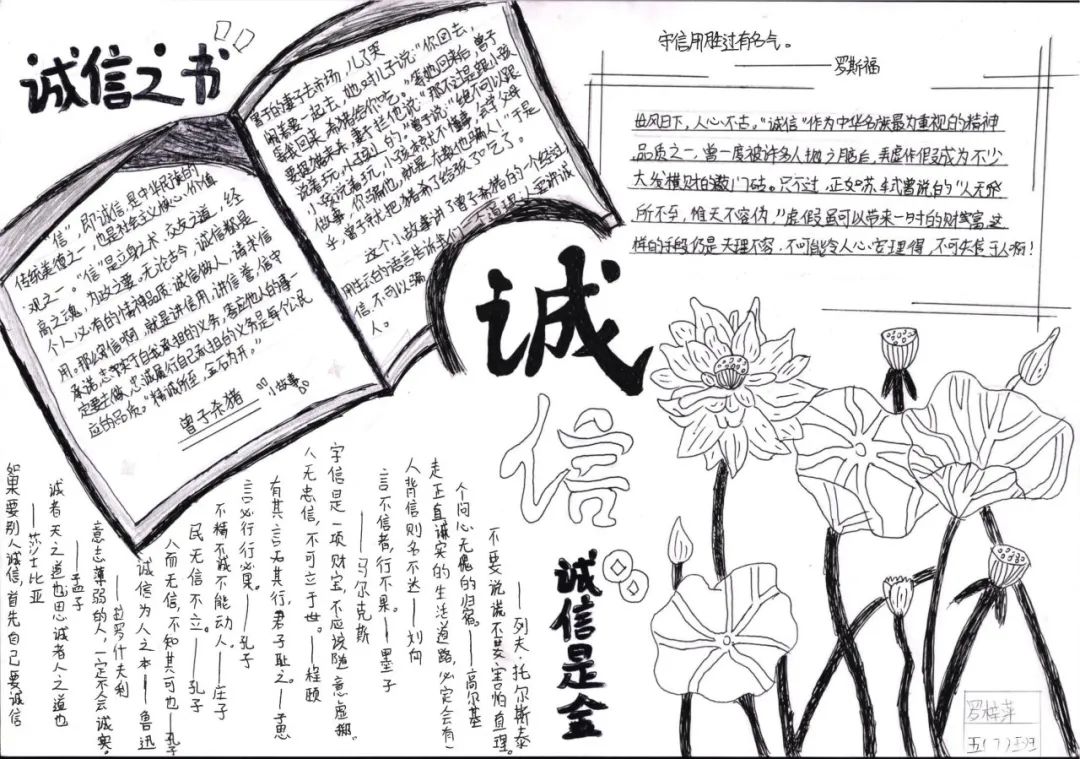 诚信之书
"信"，即诚信，是中华民族的
传统美德之一，也是社会主义核心价值
观之一。"信"是立身之术、交友之道、经
商之魂，为政之要。无论古今，诚信都是
个人必有的精神品质，诚信做人，请求信
用。那么何信啊，就是讲信用，讲信誉，信中
承诺，忠
自我承担的义务，答应他人的事一
定要去做，忠诚履行自己承担的义务是每个公民
应的品质。"精诚所至，金石为开。"
曾子杀猪
小故事
曾子的妻子去市场，儿子哭
闹着要一起去，她对儿子说："你回去，
等我回来，杀猪给你吃。"等她回来后，曾子
要捉猪来杀，妻子拦他说："那不过是跟小孩
说着玩
的。"曾子说："绝不可以跟
小孩说着玩，小孩本来就不懂事，会学父母
做事，你骗他，就是
教他骗人！"于是
曾子就把猪杀了给孩子吃了。
这个小故事讲了曾子杀猪的一个经过
用生动的语言告诉我们
要讲诚
信，不可以骗
人。
守信用胜过有名气。
——罗斯福
世风日下，人心不古。"诚信"作为中华名族最为重视的精神
品质之一，曾一度被许多人抛之脑后，弄虚作假成为不少
大发横财的敲门砖。只不过，正如苏轼曾说的"人无所
所不至，惟天不容伪，"虚假虽可以带来一时的财富，这
样的手段仍是天理不容，不可能令人心安理得，不可失信于人啊！
诚
信
诚信是金
——列夫·托尔斯泰
不要说谎，不要害怕真理。
个问心无愧的归宿。——高尔基
走正直诚实的生活道路，必定会有一
人背信则名不达——刘向
言不信者，行不果。——墨子
——马尔克斯
守信是一项财宝，不应该随意虚掷"
人无忠信，不可立于世。——程颐
有其言无其行，君子耻之。——
言必行行必果。——孔子
不精不诚不能动人。——庄子
民无信不立。——孔子
人而无信，不知其可也——孔子
诚信为人之本——鲁迅
——拉罗什夫利
意志薄弱的人，一定不会诚实。
——孟子
诚者天之道也思诚者人之道也
——莎士比亚
如果要别人诚信，首先自己要诚信
罗梓萍
五(7)班